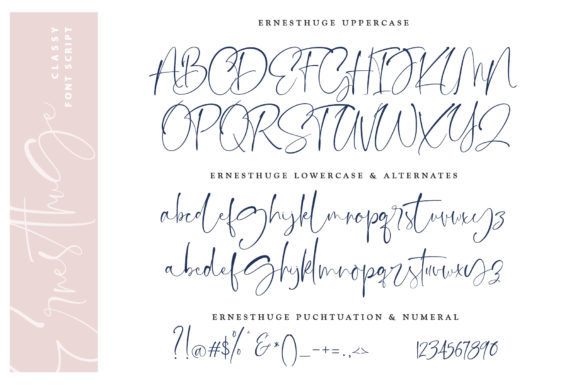 CLASSY
FONT SCRIPT
Ernesthuge
ERNESTHUGE UPPERCASE
ABCDEFGHIJKLMN
OPQRSTUVWXYZ
ERNESTHUGE LOWERCASE & ALTERNATES
abcdefghyklmnopqrstuvwxyz
abcdefghyklmnopqrstuvwxyz
ERNESTHUGE PUCHTUATION & NUMERAL
?!@#$%^&*()_-+=.,<> 1234567890